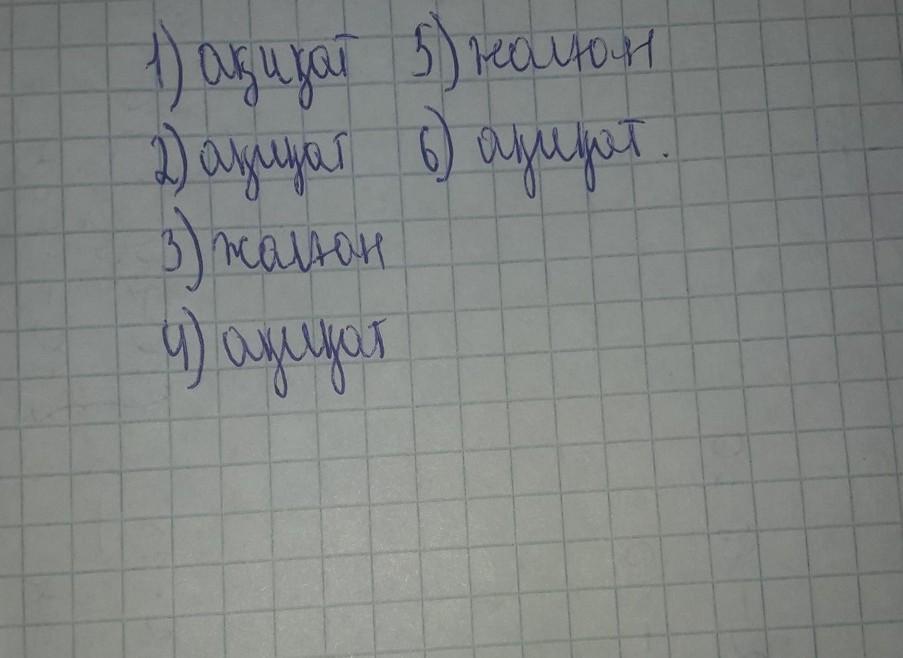 1) ақиқат 5) жалған
2) ақиқат 6) ақиқат.
3) жалған
4) ақиқат